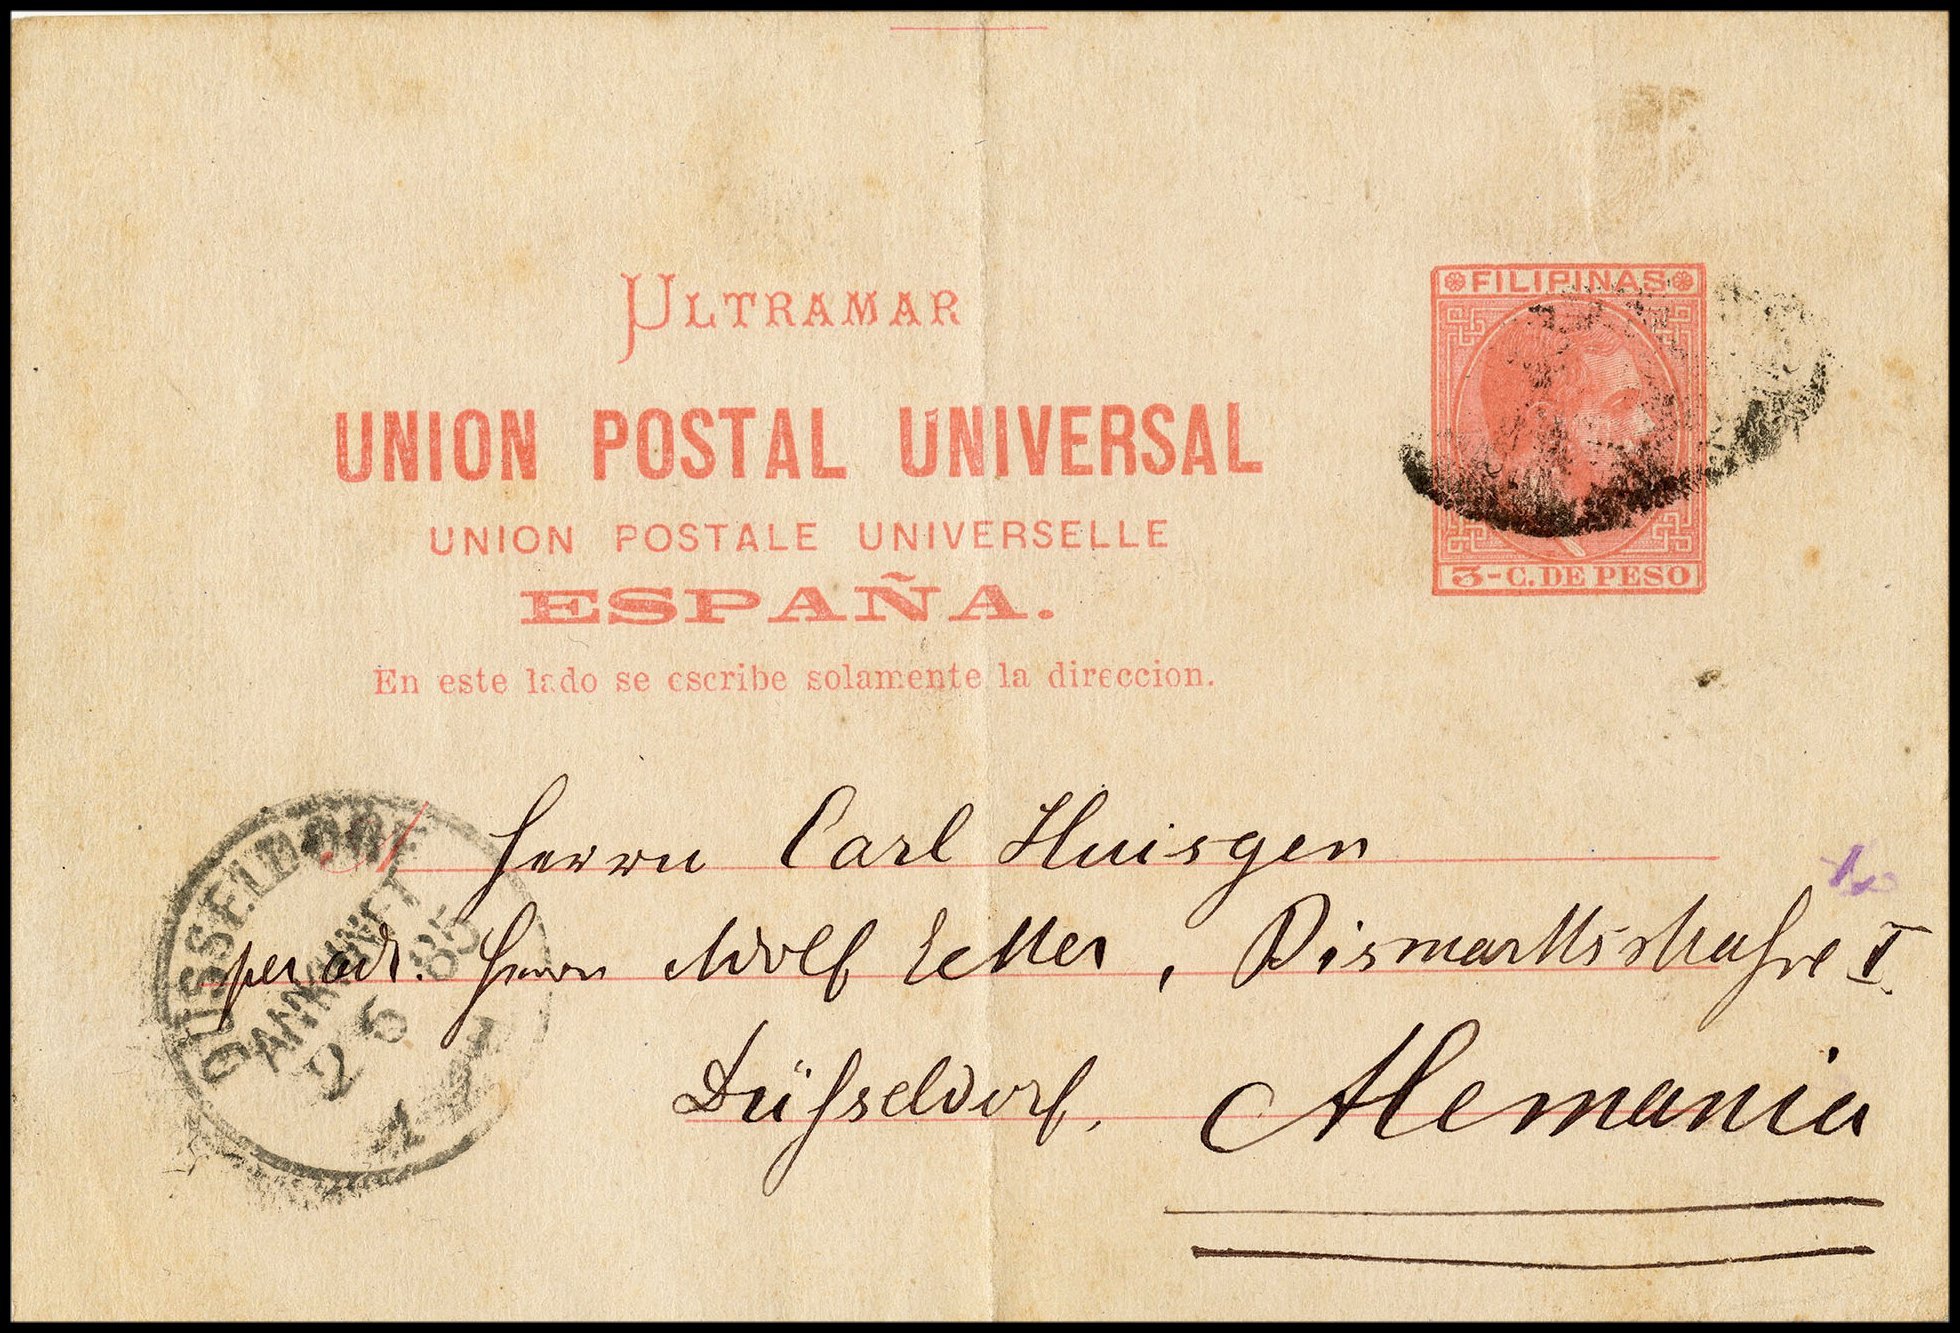 ULTRAMAR
UNION POSTAL UNIVERSAL
UNION POSTALE UNIVERSELLE
ESPAÑA.
En este lado se escribe solamente la direccion.
FILIPINAS
3-C. DE PESO
Herrn Carl Huisgen
per adr. Herrn Adolf Bismarckstraße I
Düsseldorf, Alemania
DÜSSELDORF
ANKUNFT
2 6 85